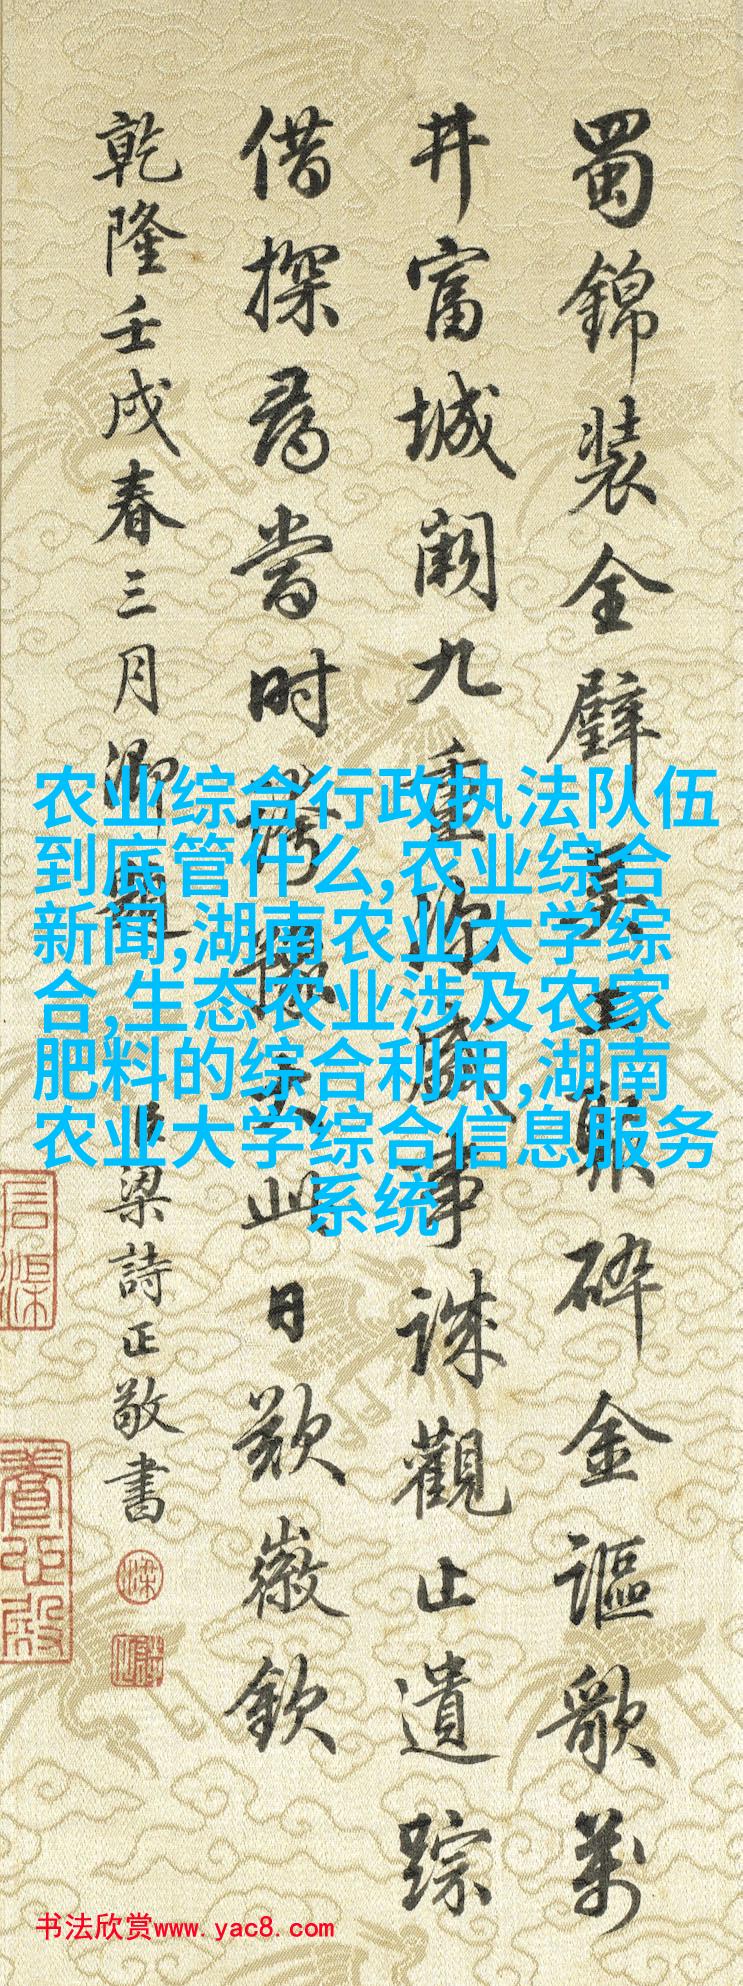 蜀錦装全璧美工聚碎金謳歌萬
井富城闕九重深盛事誅觀止遺踪
借探尋當時誇豔此日歎徽欽
乾隆壬戌春三月御題
臣梁詩正敬書
农业综合行政执法队伍
到底管什么,农业综合
新闻,湖南农业大学综
合,生态农业涉及农家
肥料的综合利用,湖南
农业大学综合信息服务
系统
书法欣赏www.yac8.com